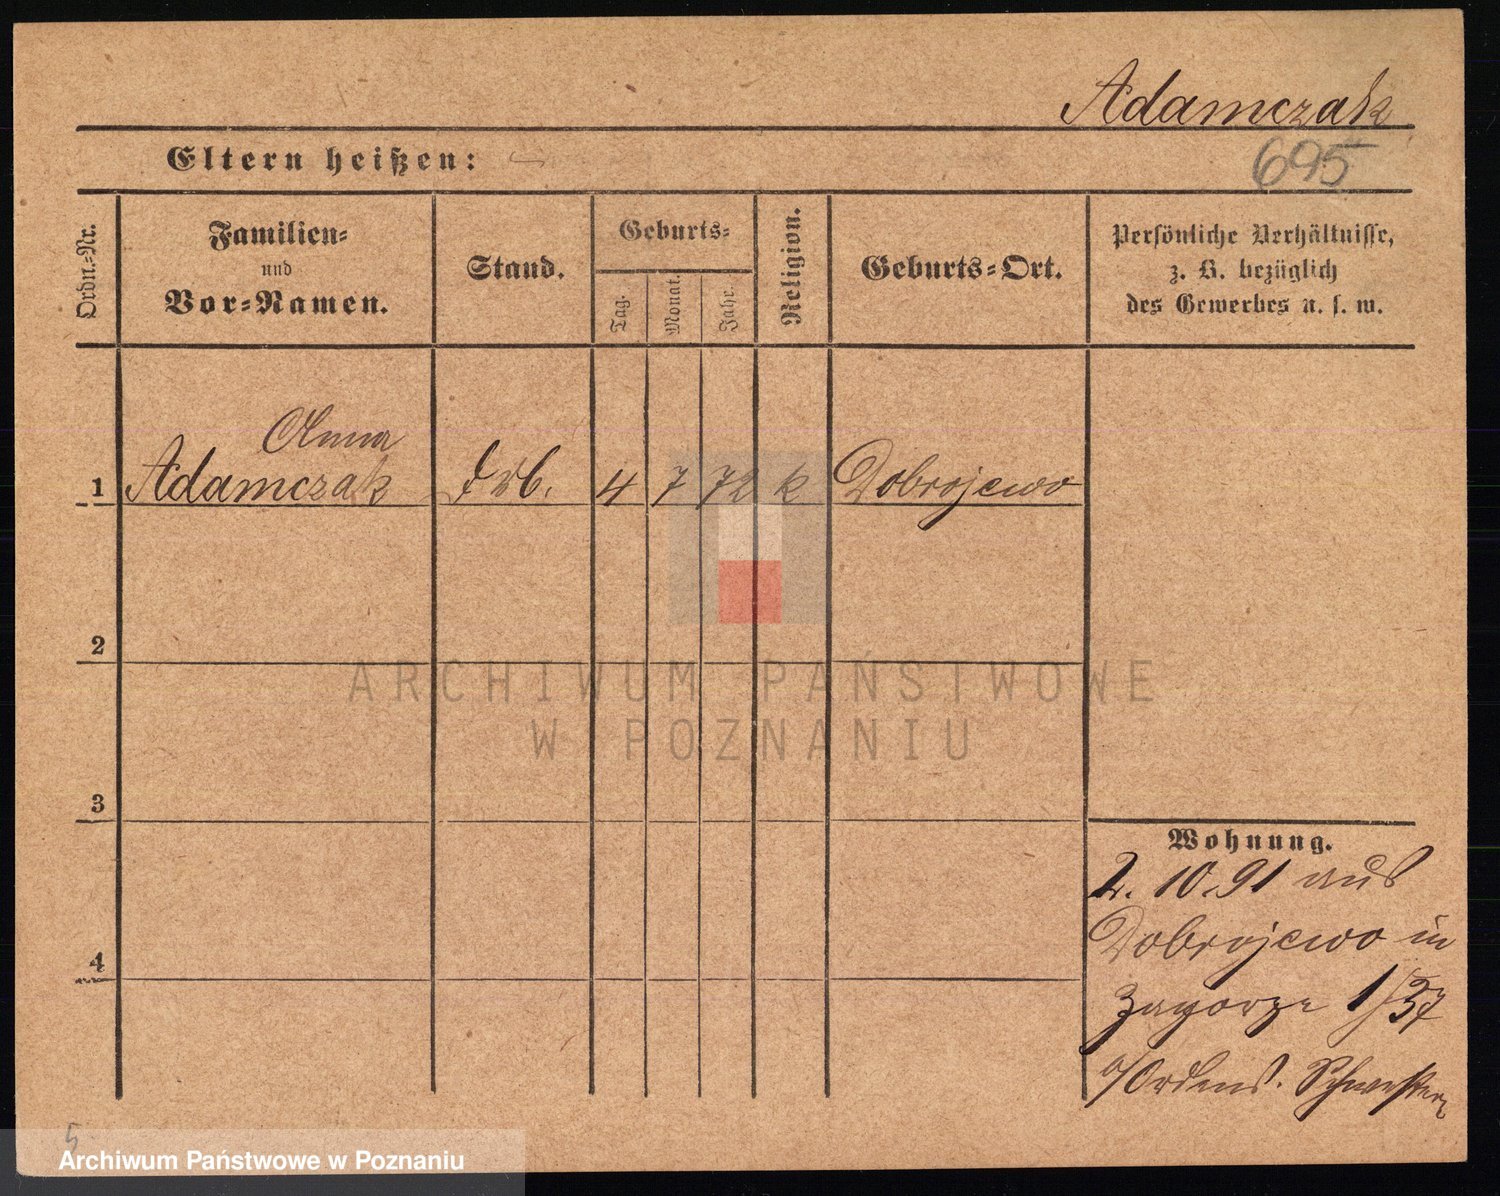 Adamczak
Eltern heißen:
695
Ordn.-Nr.
Familien-
und
Vor-Namen.
Stand.
Geburts-
Tag.
Monat.
Jahr.
Religion.
Geburts-Ort.
Persönliche Verhältnisse,
z. B. bezüglich
des Gewerbes u. s. w.
Anna
1 Adamczak 4 7 72 k Dobrojewo
2
3
4
ARCHIWUM PAŃSTWOWE
W POZNANIU
Wohnung.
2. 10. 91 aus
Dobrojewo in
Zagorze 1/
Ordens. Schwestern
5
Archiwum Państwowe w Poznaniu